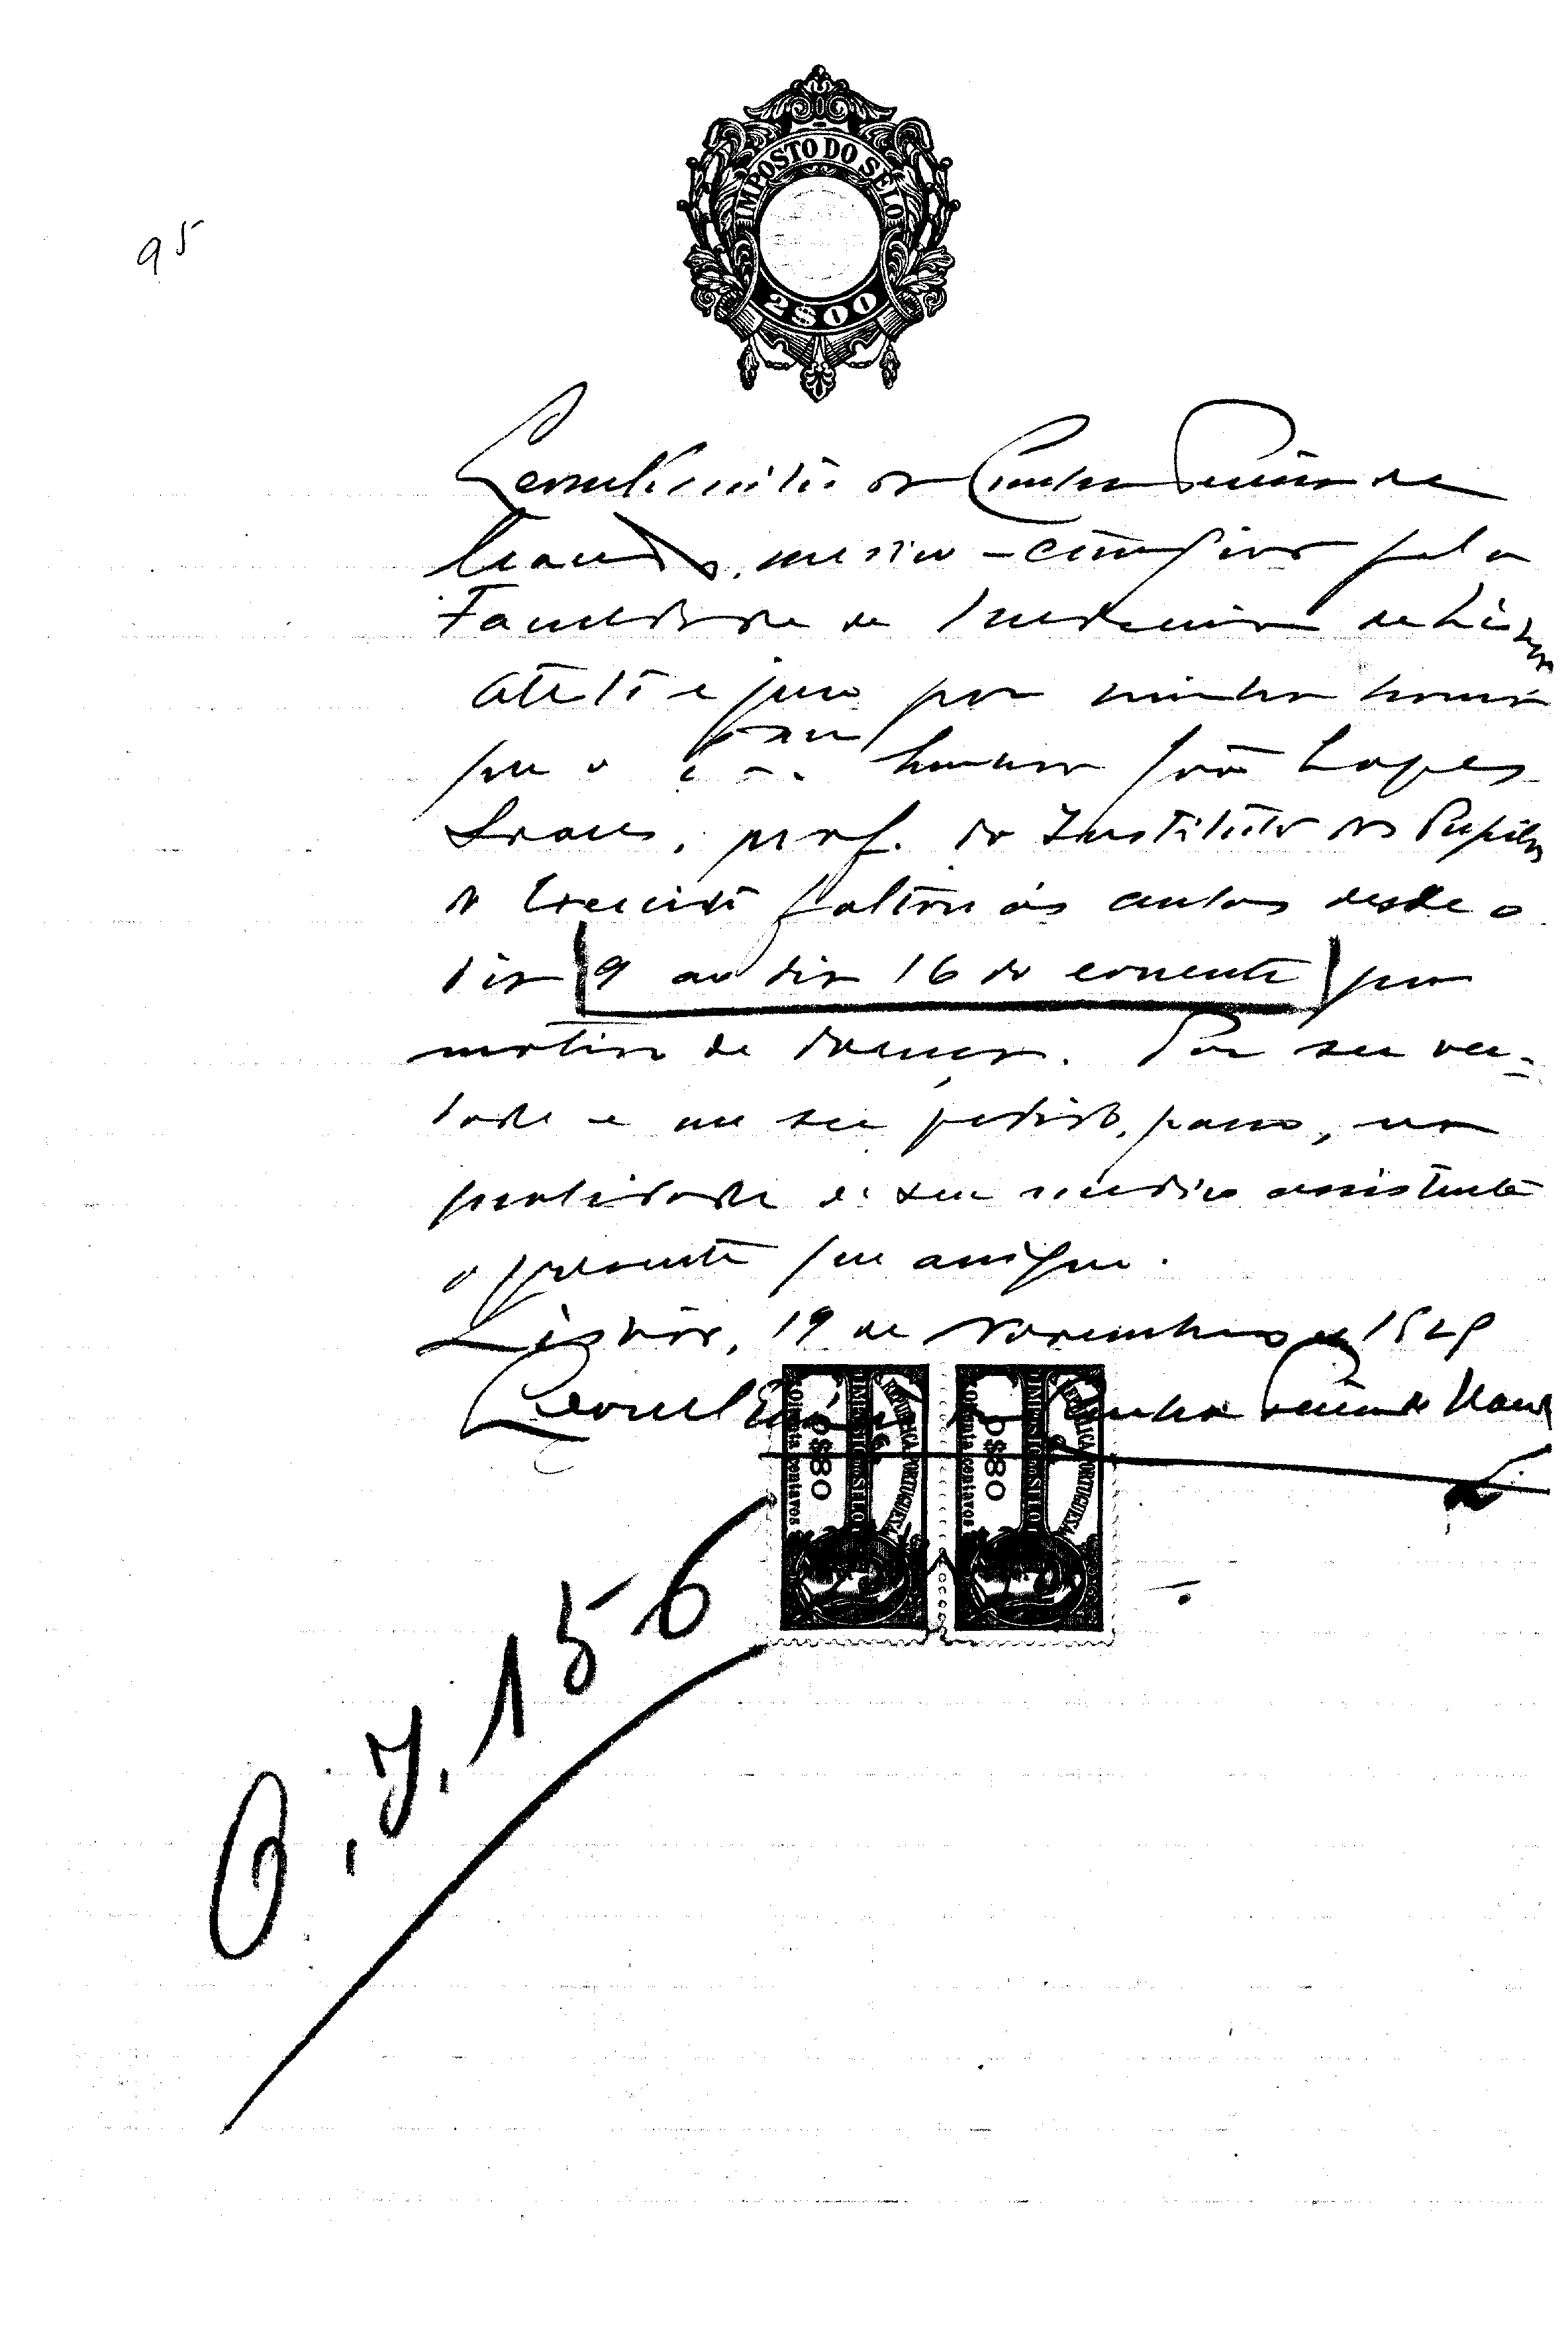 IMPOSTO DO SELO
2$00
95
da Cunha
medico-cirurgião pela
Faculdade de Medicina de Lisboa
Attesto e juro por minha honra
que o João Lopes
Soares, prof. do Instituto dos Pupilos
do Exercito faltou ás aulas desde o
dia 9 ao dia 16 do corrente por
motivo de doença. Por ser ver-
dade e me ser pedido, passo, na
qualidade de seu medico assistente
o presente que assigno.
Lisboa, 19 de Novembro de
da Cunha
REPUBLICA PORTUGUESA IMPOSTO DO SELO 0$80 Oitenta centavos
REPUBLICA PORTUGUESA IMPOSTO DO SELO 0$80 Oitenta centavos
156